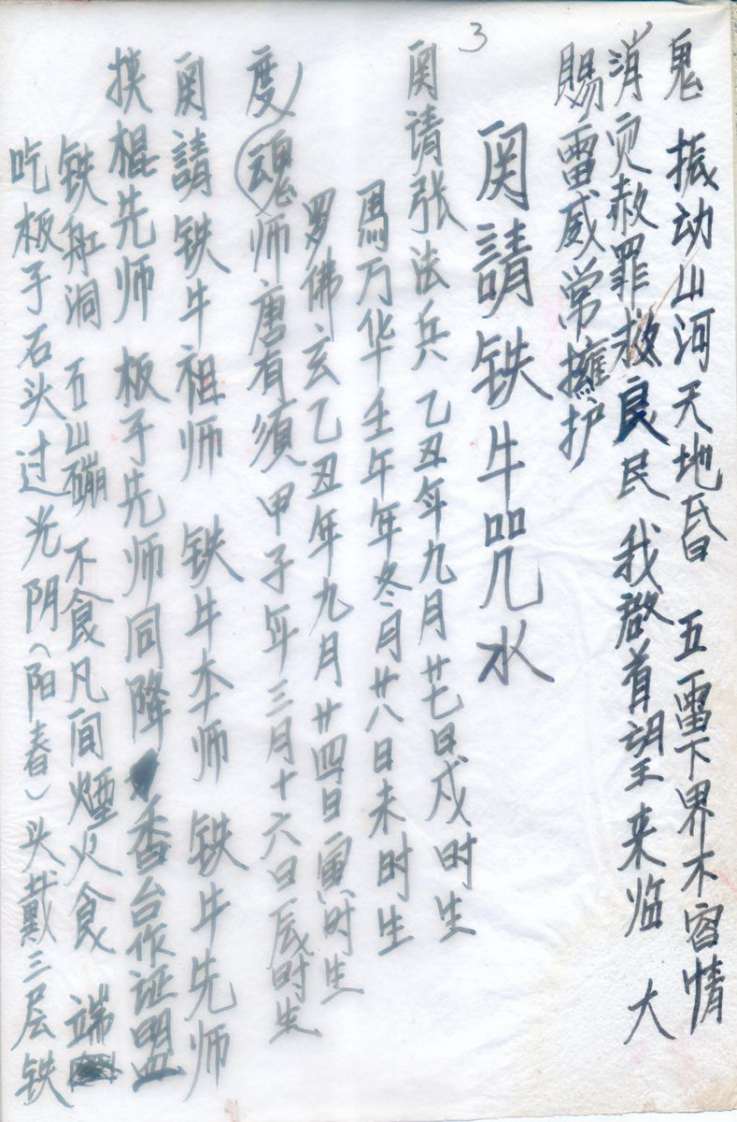 鬼 振动山河天地昏 五雷下界不容情
消灾赦罪救良民 我啟首望来临 大
賜雷威常擁护
3
闰請铁牛咒水
闰请张法兵 乙丑年九月廿七日戍时生
馬万华壬午年冬月廿八日未时生
罗佛玄乙丑年九月廿四日寅时生
度(魂)师唐有須 甲子年三月十六日辰时生
闰請铁牛祖师 铁牛本师 铁牛先师
挟棍先师 板子先师同降 香台作证盟
铁船洞 石山磞 不食凡间煙火食 端
吃板子石头过光阴(阳春)头戴三层铁